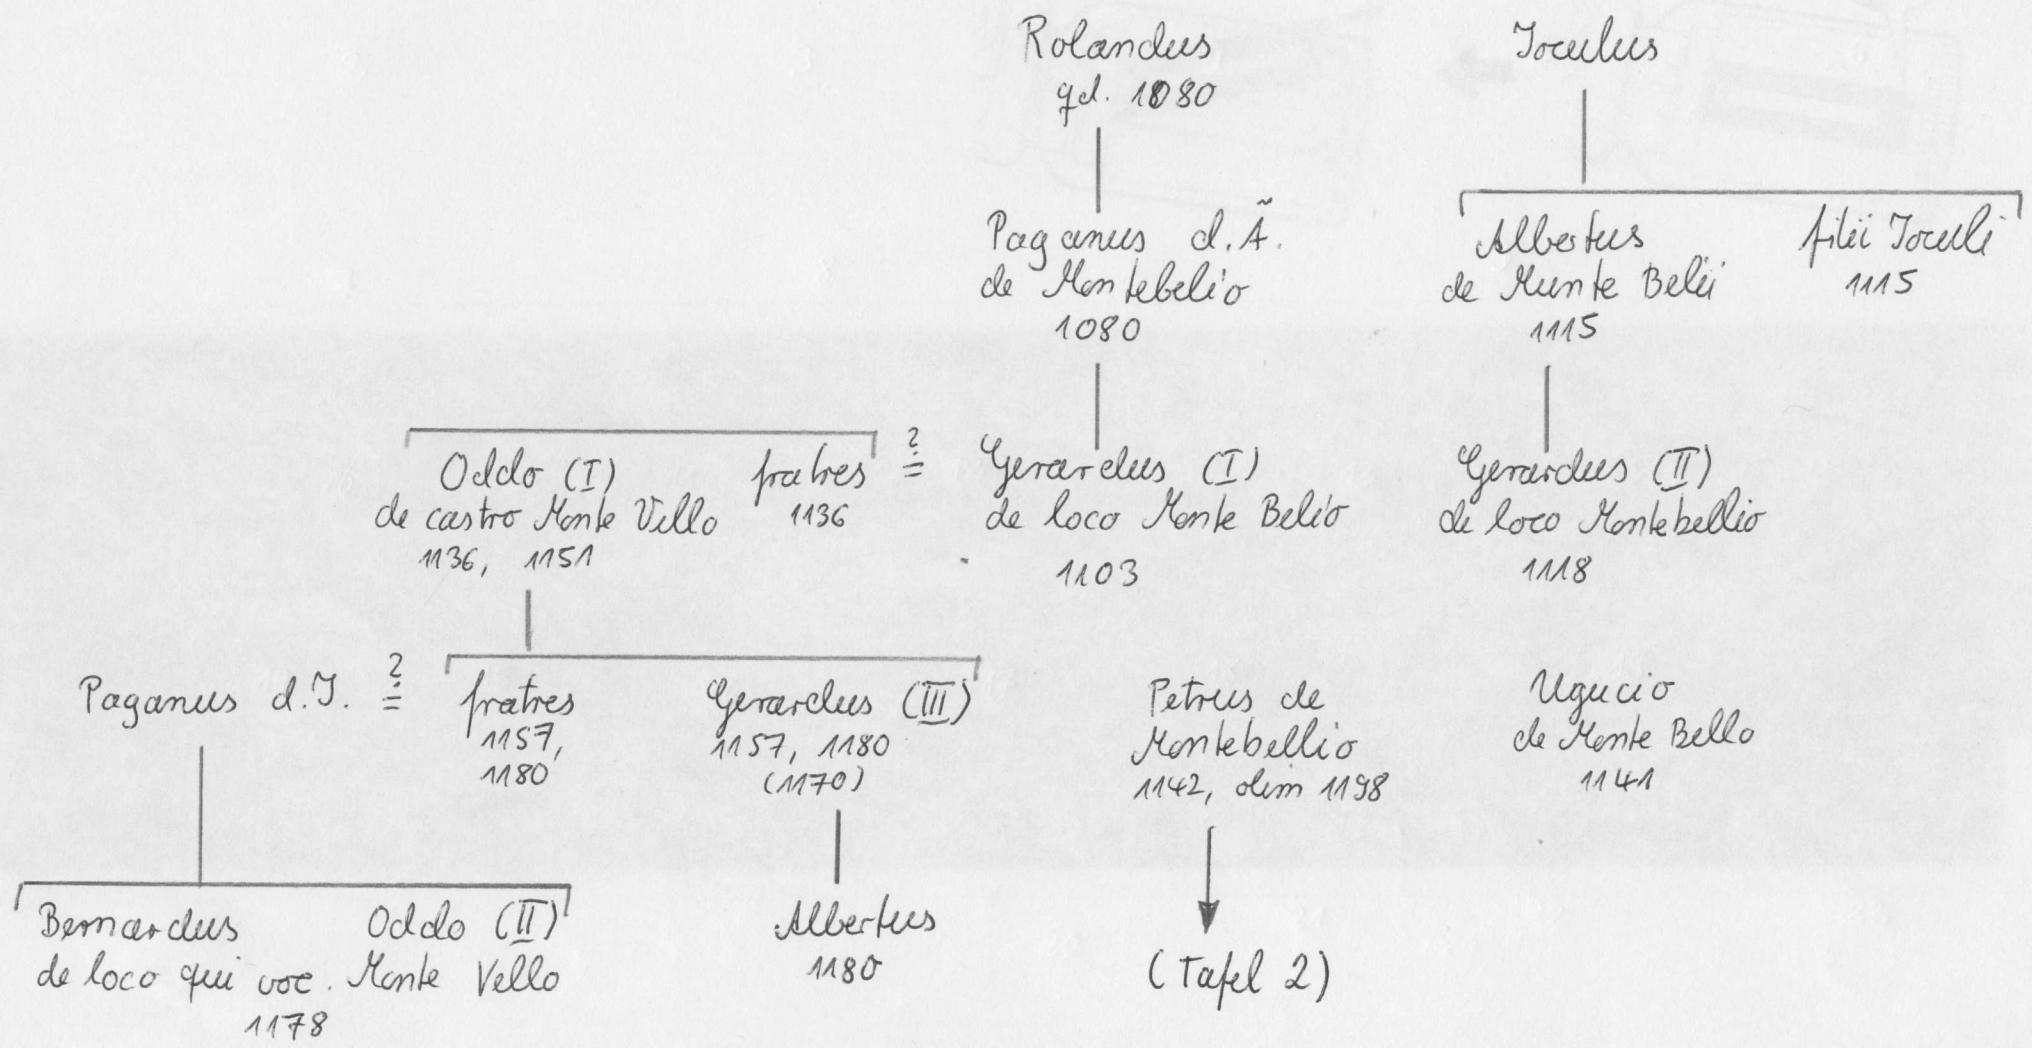 Rolandus
qd. 1080
Joculus
Paganus d. Ä.
de Montebelio
1080
Albertus
de Munte Belii
1115
filii Joculi
1115
Oddo (I)
de castro Monte Vello
1136, 1151
fratres
1136
?
=
Gerardus (I)
de loco Monte Belio
1103
Gerardus (II)
de loco Montebellio
1118
Paganus d. J.
?
=
fratres
1157,
1180
Gerardus (III)
1157, 1180
(1170)
Petrus de
Montebellio
1142, olim 1198
Ugucio
de Monte Bello
1141
Bernardus Oddo (II)
de loco qui voc. Monte Vello
1178
Albertus
1180
(Tafel 2)